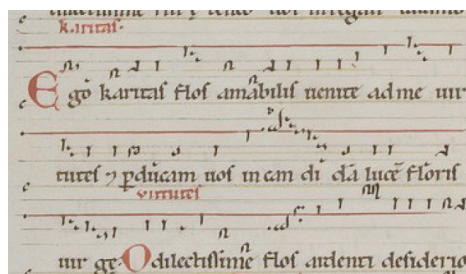 karitas.
Ego karitas flos amabilis uenite ad me uir
tutes ⁊ ꝑducam uos in can di dā lucē floris
uirtutes
uir ge O dilectissime flos ardenti desiderio